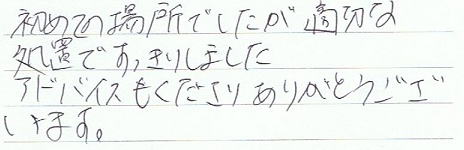 初めての場所でしたが適切な
処置ですっきりしました
アドバイスもくださりありがとうござ
います。